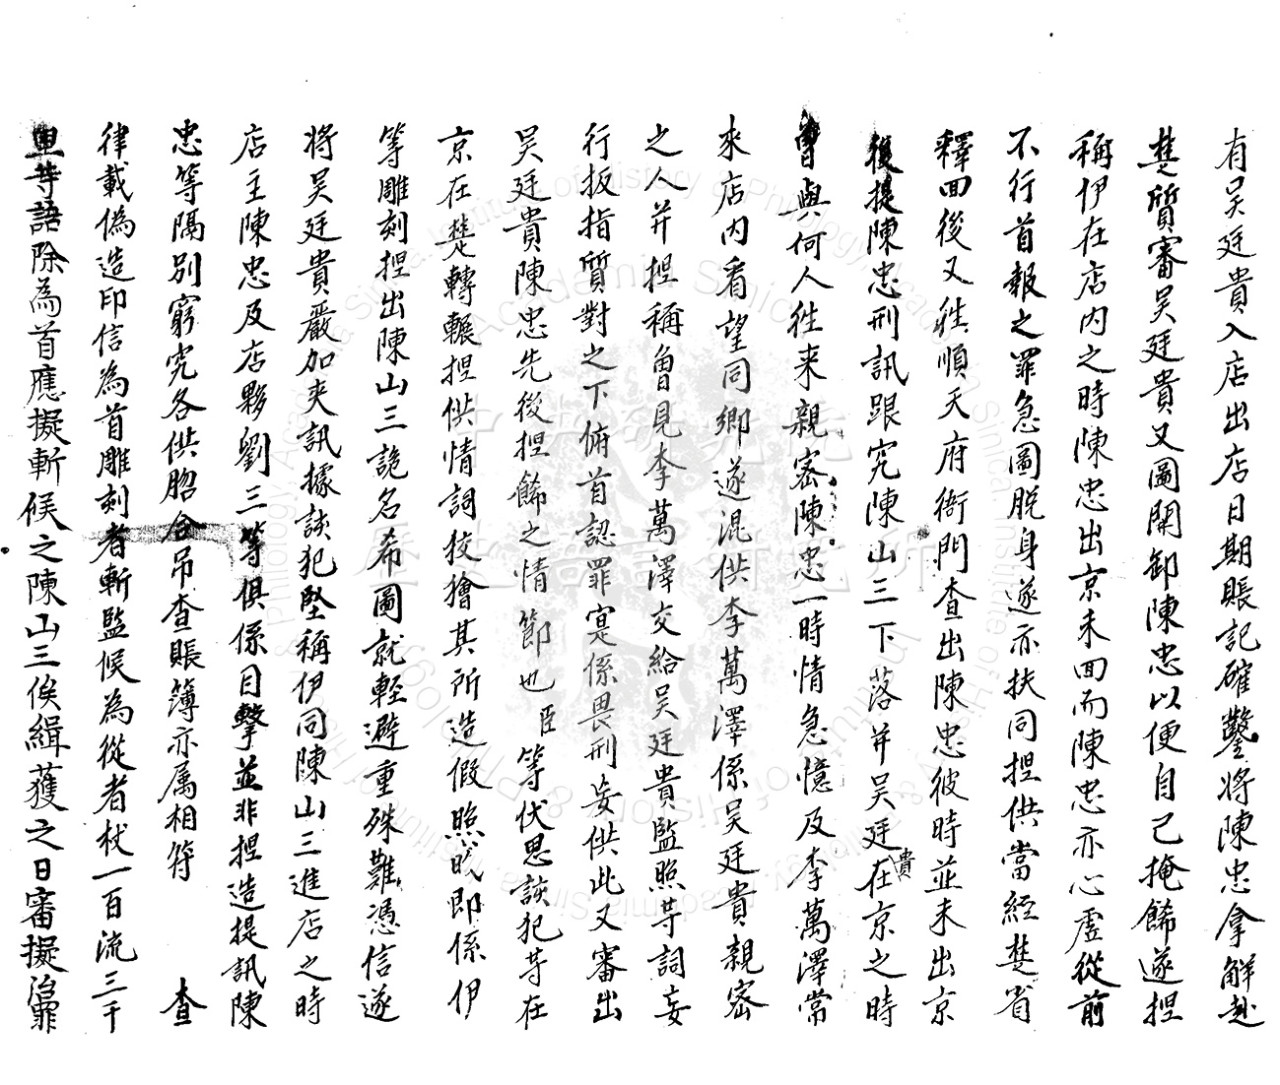 有吴廷貴入店出店日期賬記確鑿將陳忠拿解赴
楚質審吴廷貴又圖開卸陳忠以便自己掩餙遂捏
稱伊在店内之時陳忠出京未回而陳忠亦心虚從前
不行首報之罪急圖脱身遂亦扶同捏供當經楚省
釋回後又牲順天府衙門查出陳忠彼時並未出京
後提陳忠刑訊跟究陳山三下落并吴廷貴在京之時
曾與何人徃来親宻陳忠一時情急憶及李萬澤常
來店内看望同鄉遂混供李萬澤係吴廷貴親宻
之人并捏稱曾見李萬澤交給吴廷貴監照等詞妄
行扳指質對之下俯首認罪寔係畏刑妄供此又審出
吴廷貴陳忠先後捏餙之情節也臣等伏思該犯等在
京在楚轉輾捏供情詞狡獪其所造假照或即係伊
等雕刻捏出陳山三詭名希圖就輕避重殊難憑信遂
將吴廷貴嚴加夾訊據該犯堅稱伊同陳山三進店之時
店主陳忠及店夥劉三等俱係目擊並非捏造提訊陳
忠等隔别窮究各供脗合吊查賬簿亦属相符 查
律載偽造印信為首雕刻者斬監候為從者杖一百流三千
里等語除為首應擬斬候之陳山三俟緝獲之日審擬治罪